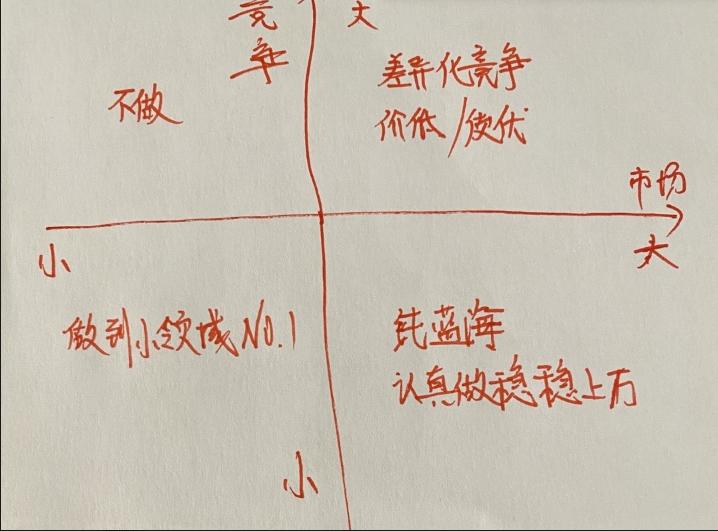 竞争
大
不做
差异化竞争
价低/使优
市场
小
大
做到小领域NO.1
纯蓝海
认真做稳稳上万
小